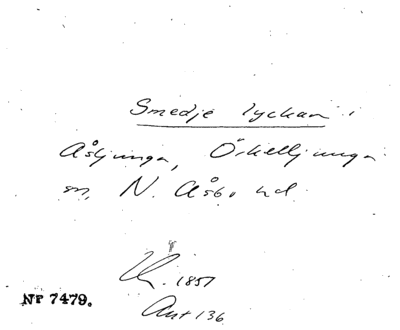 Smedje lyckan i
Åsljunga, Örkelljunga
sn, N. Åsbo hd.
Uk. 1857
Ant 136
Nr 7479.